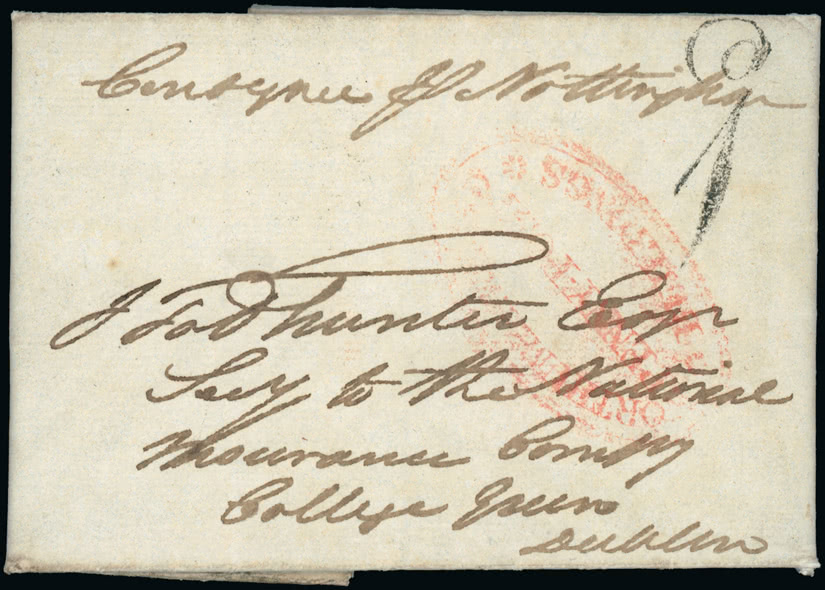 Consignee pr Nottingham
J Todhunter Esqr
Secy to the National
Insurance Compy
College Green
Dublin